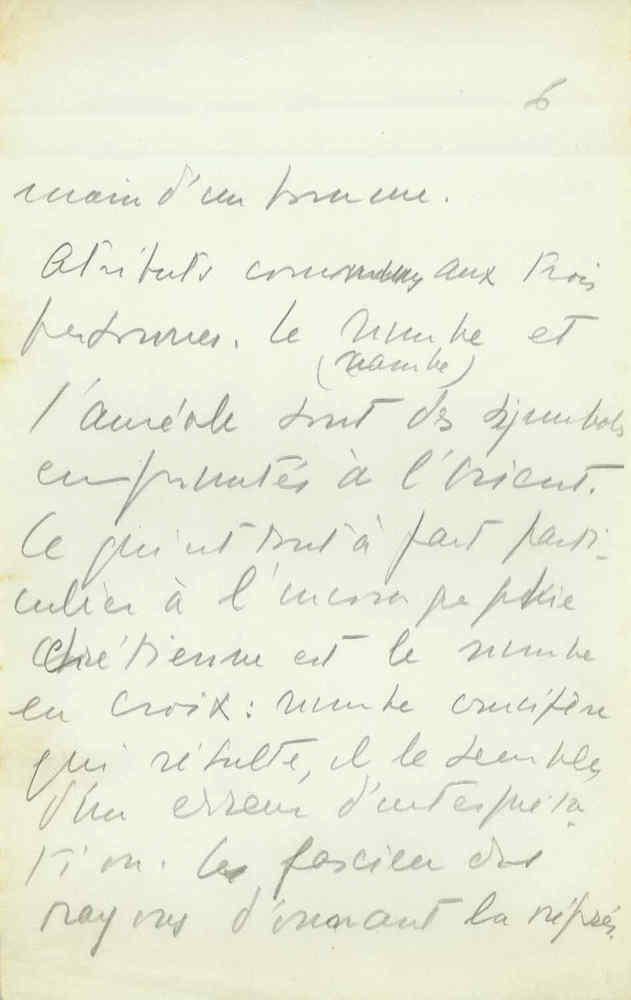 6
main d'un homme.
Atributs communs aux trois
personnes. Le nimbe et
(nambe)
l'auréole sont des symbols
empruntés à l'Orient.
Ce qui est tout à fait parti-
culier à l'iconographie
Chrétienne est le nimbe
en croix: nimbe crucifère
qui résulte, il le semble,
d'un erreur d'interpréta-
tion. Les fascicu des
rayons d'onnant la représ.